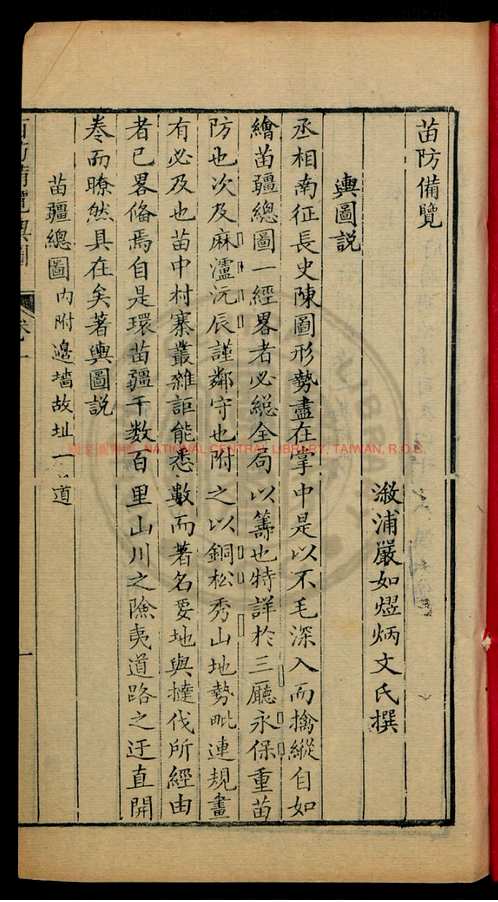 苗防備覽
溆浦嚴如熤炳文氏撰
輿圖說
丞相南征長史陳圖形勢盡在掌中是以不毛深入而擒縱自如
繪苗疆總圖一經畧者必總全局以籌也特詳於三廳永保重苗
防也次及麻瀘沅辰謹鄰守也附之以銅松秀山地勢毗連規畫
有必及也苗中村寨叢雜詎能悉數而著名要地與撻伐所經由
者已畧俻焉自是環苗疆千数百里山川之險夷道路之迂直開
卷而瞭然具在矣著輿圖說
苗疆總圖內附邊墻故址一道
苗防備覽輿圖 卷一 一
NATIONAL CENTRAL LIBRARY, TAIWAN, R.O.C.